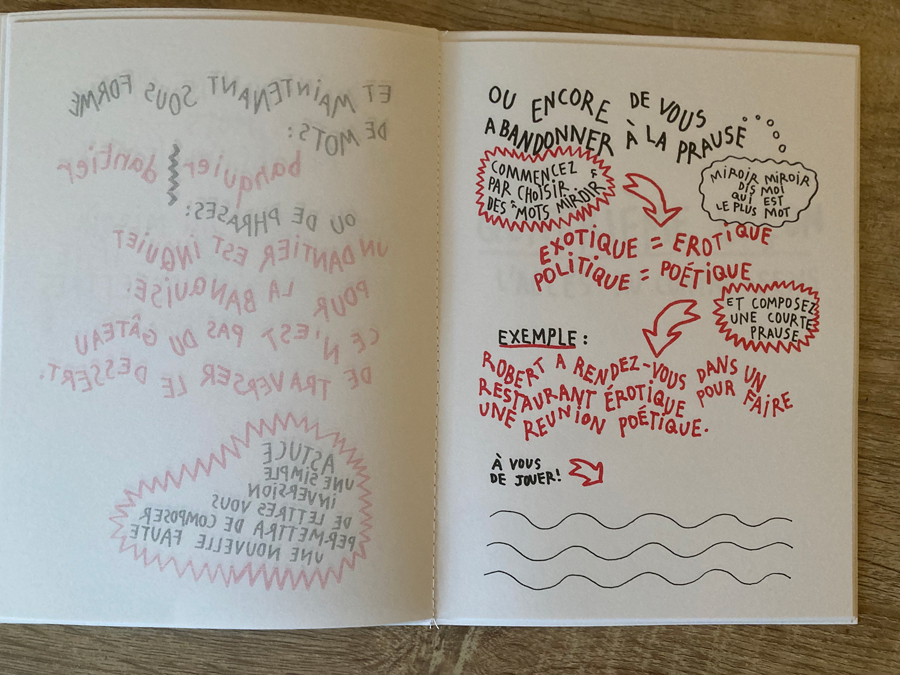 ET MAINTENANT SOUS FORME
DE MOTS:
banquier dantier
OU DE PHRASES:
UN DANTIER EST INQUIET
POUR LA BANQUISE:
CE N'EST PAS DU GÂTEAU
DE TRAVERSER LE DESSERT.
ASTUCE
UNE SIMPLE
INVERSION
DE LETTRES VOUS
PERMETTRA DE COMPOSER
UNE NOUVELLE FAUTE
OU ENCORE DE VOUS
ABANDONNER À LA PRAUSE
COMMENCEZ
PAR CHOISIR
DES "MOTS MIROIR"
MIROIR MIROIR
DIS MOI
QUI EST
LE PLUS MOT
EXOTIQUE = EROTIQUE
POLITIQUE = POÉTIQUE
ET COMPOSEZ
UNE COURTE
PRAUSE
EXEMPLE:
ROBERT A RENDEZ-VOUS DANS UN
RESTAURANT ÉROTIQUE POUR FAIRE
UNE REUNION POÉTIQUE.
À VOUS
DE JOUER!